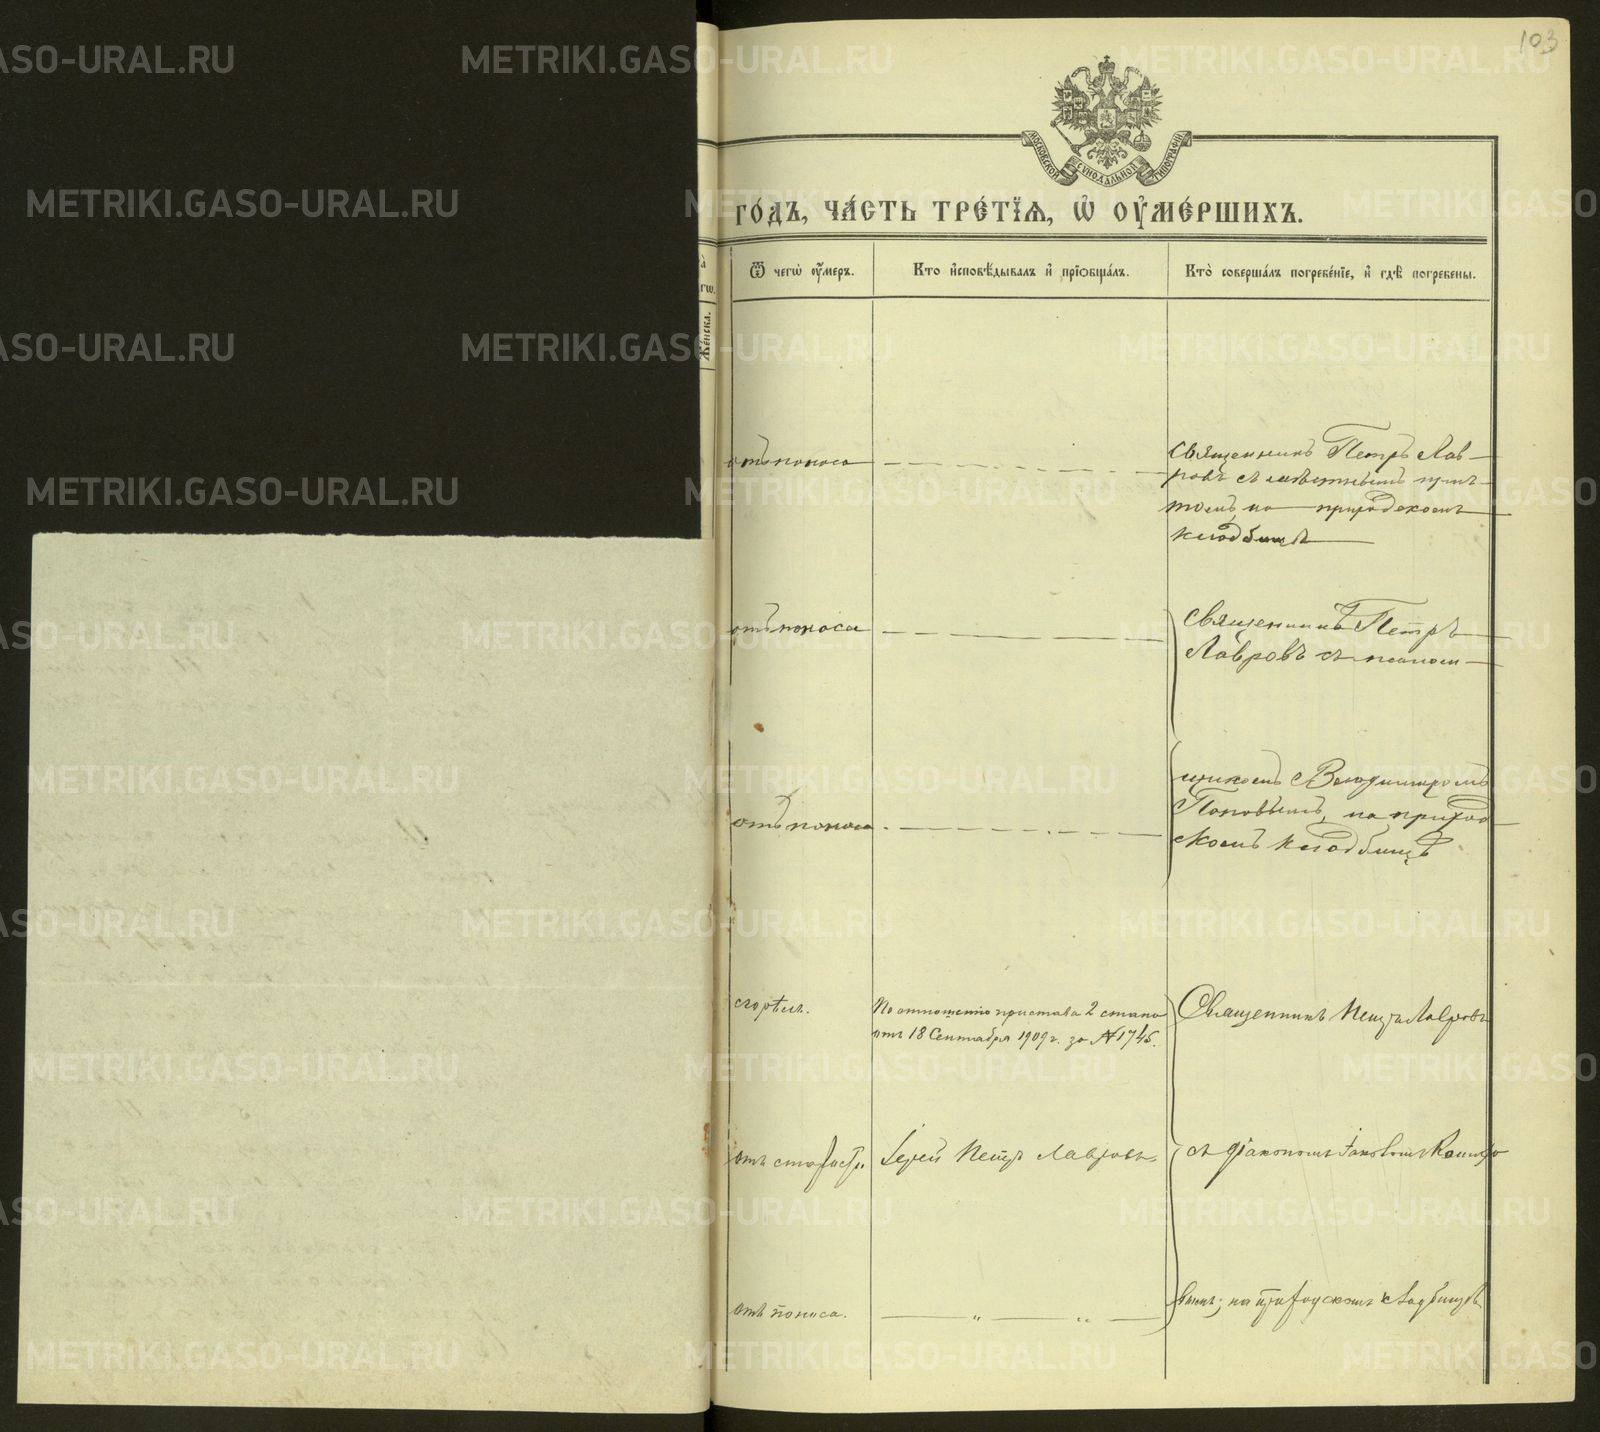 103
МОСКОВСКОЙ СѴНОДАЛЬНОЙ ТИПОГРАФІИ
го́дъ, ча́сть тре́тїѧ, ѡ҆ ᲂу҆ме́ршихъ.
Ѿ чегѡ̀ ᲂу҆́меръ.
Кто̀ и҆сповѣ́дывалъ и҆ прїѡбща́лъ.
Кто̀ соверша́лъ погребе́нїе, и҆ гдѣ̀ погребены̀.
Же́нска.
отъ поноса
Священникъ Петръ Лав-
ровъ съ мѣстнымъ прич-
томъ, на приходскомъ
кладбищѣ
отъ поноса
Священникъ Петръ
Лавровъ съ псалом-
отъ поноса
щикомъ Владимиромъ
Поповымъ, на приход
скомъ кладбищѣ
сгорѣлъ.
По отношенію пристава 2 стана
отъ 18 Сентября 1909 г. за №1745.
Священникъ Петръ Лавровъ
отъ старости
Іерей Петръ Лавровъ
съ діакономъ Іаковомъ
отъ поноса.
вымъ; на приходскомъ кладбищѣ
METRIKI.GASO-URAL.RU